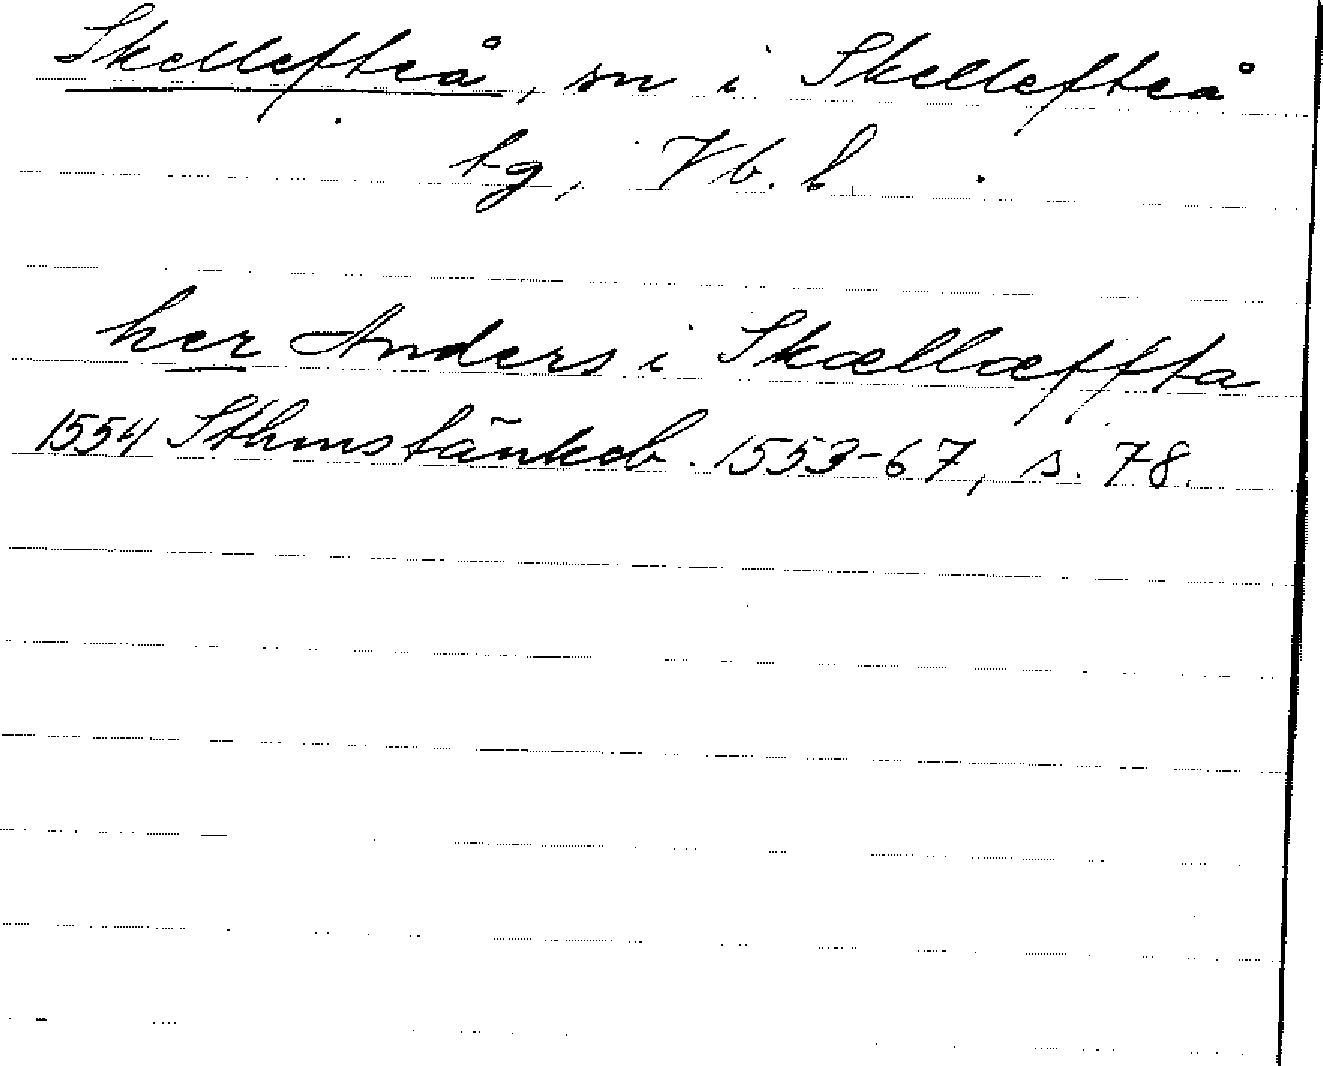 Skellefteå, sn i Skellefteå
tg, Vb. l
her Anders i Skællæffta
1554 Sthmstänkeb. 1553-67, s. 78.